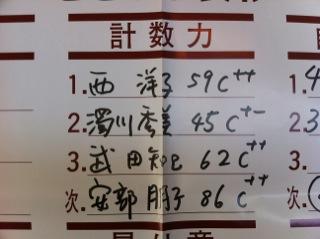 計数力
1. 西 洋子 59 C++
2. 濁川秀美 45 C+-
3. 武田知巳 62 C++
次. 安部 朋子 86 C++
1. 4
2. 3
3.
次.